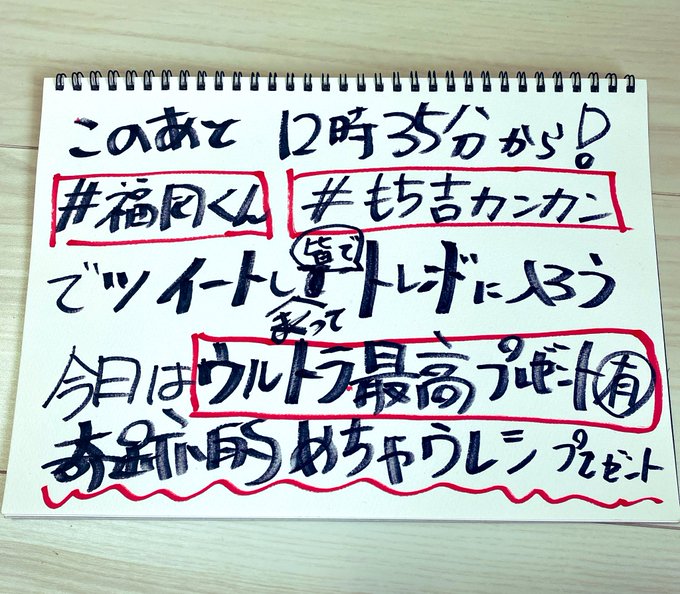 このあと 12時35分から!
#福岡くん #もち吉カンカン
でツイートしまくって皆でトレンドに入ろう
今日はウルトラ最高プレゼント有
奇跡的めちゃウレシプレゼント